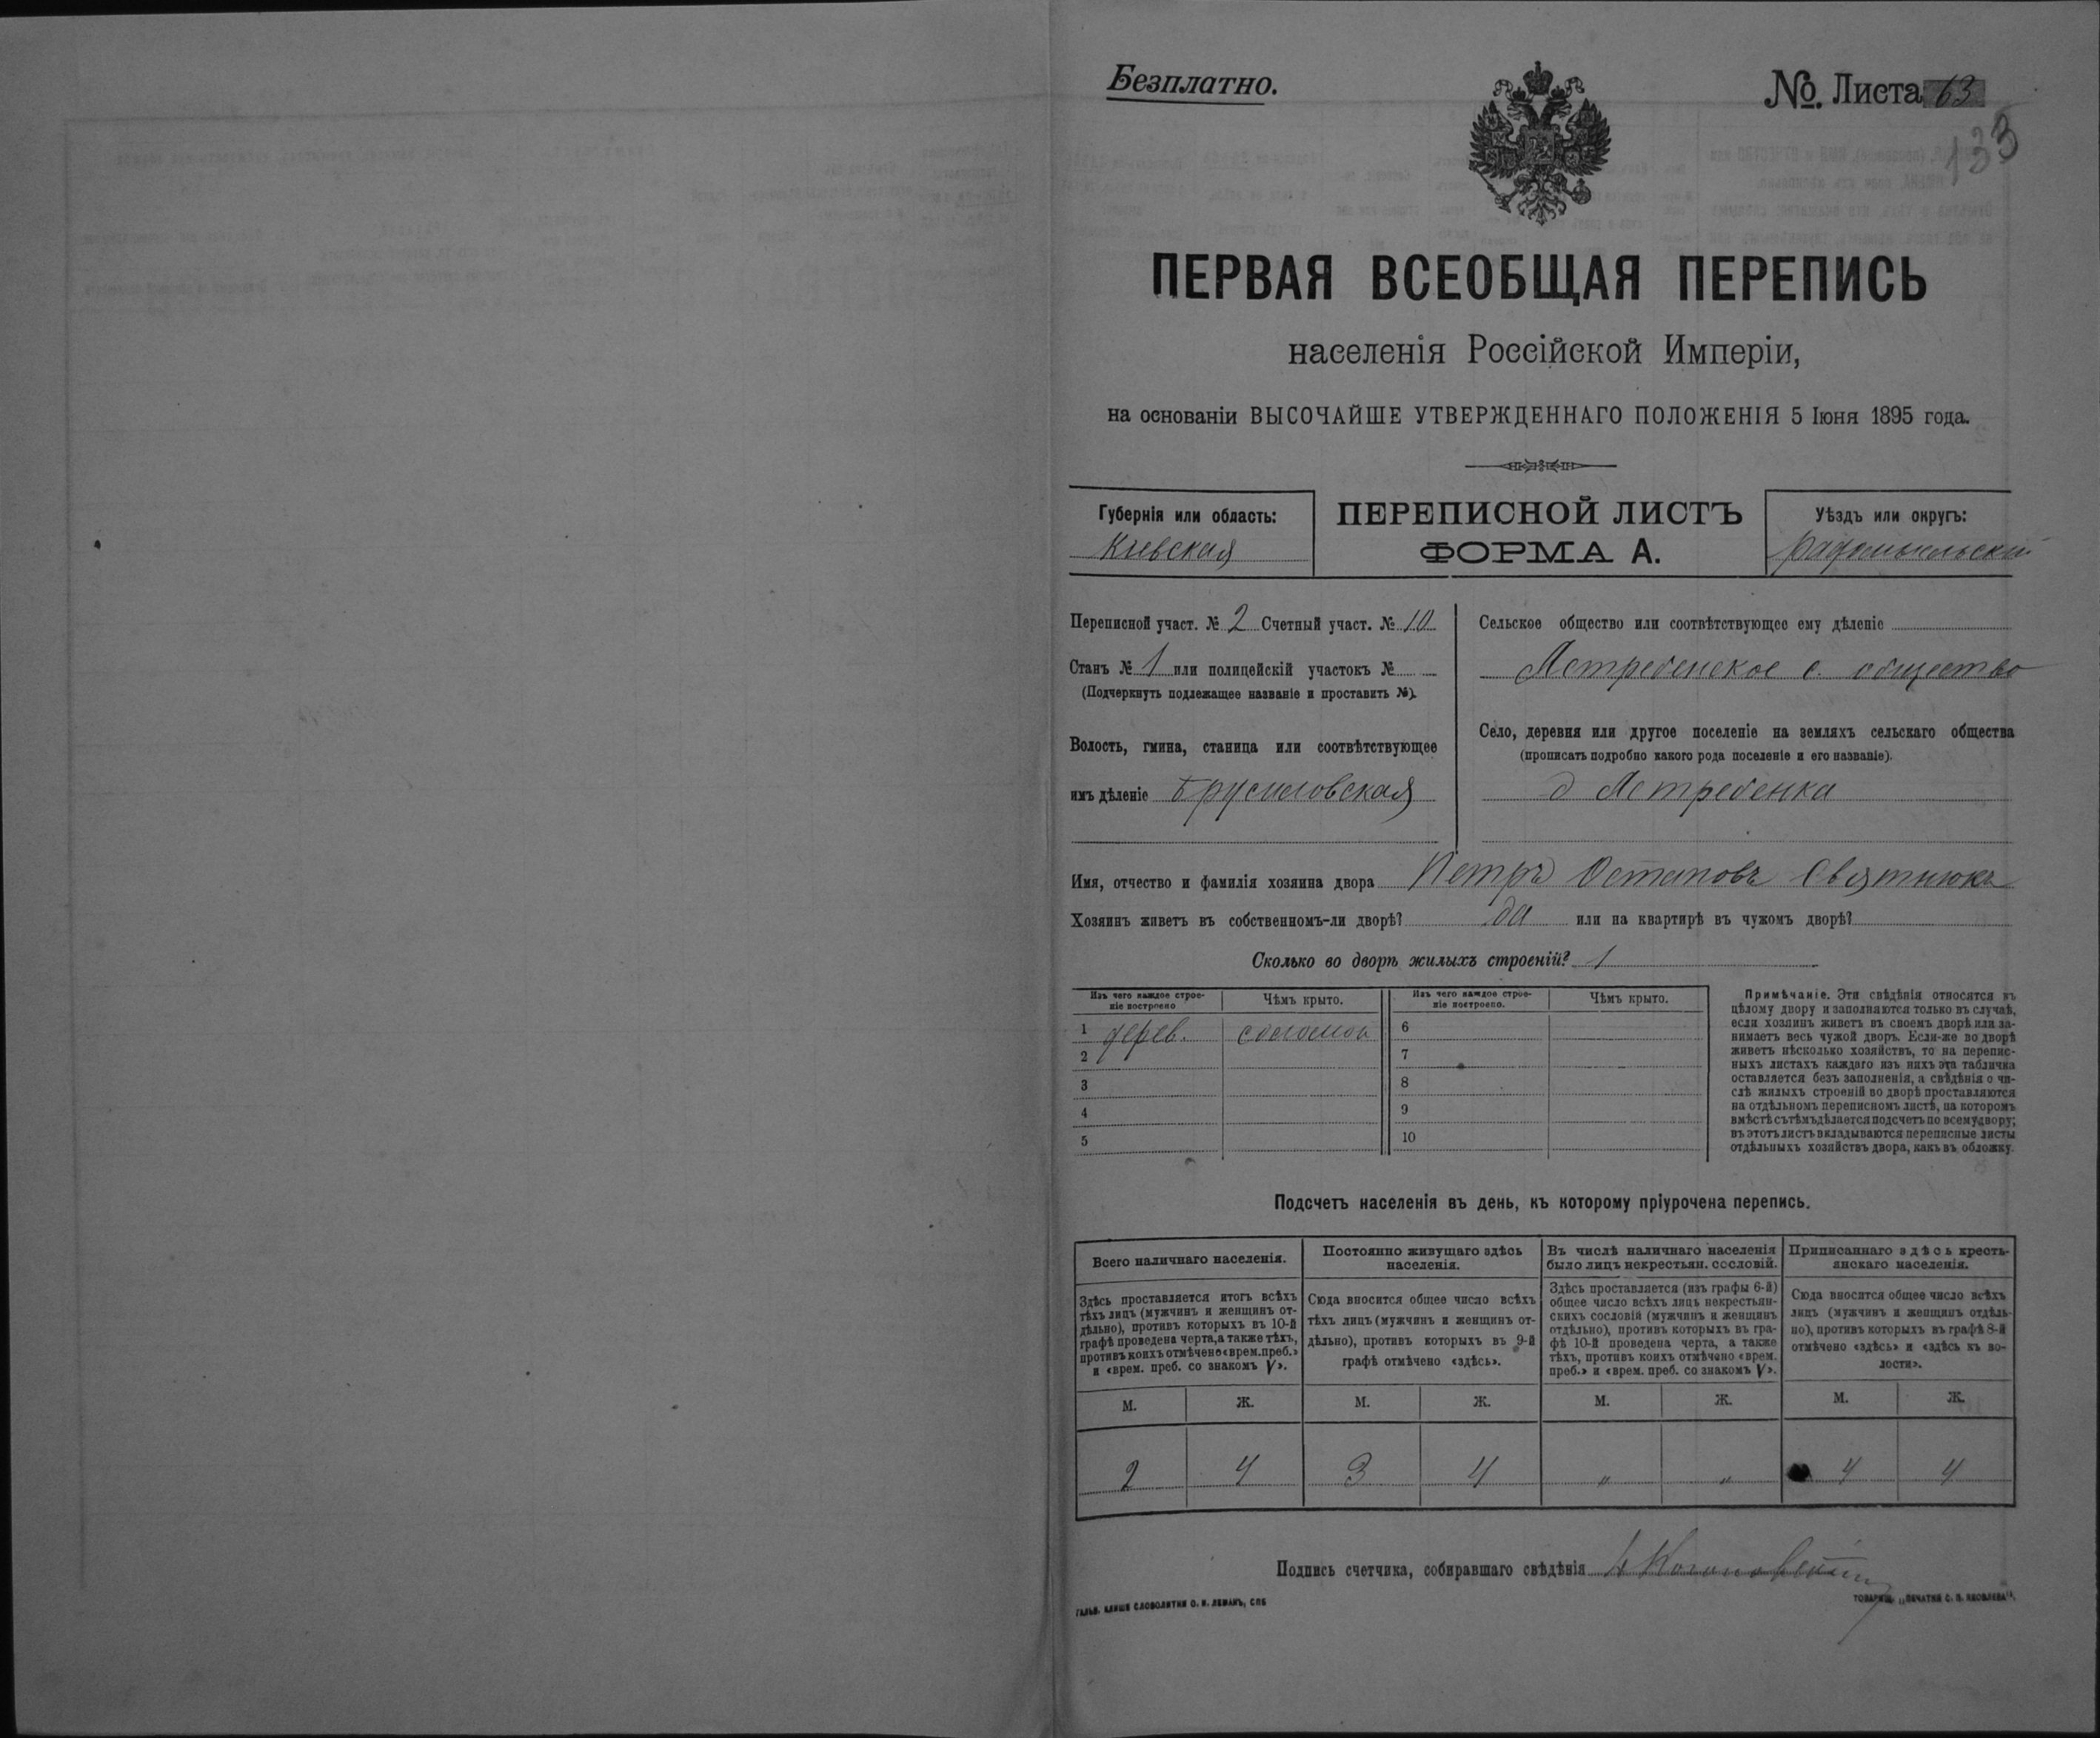 Безплатно.
№. Листа 63
133
ПЕРВАЯ ВСЕОБЩАЯ ПЕРЕПИСЬ
населенія Россійской Имперіи,
на основаніи ВЫСОЧАЙШЕ УТВЕРЖДЕННАГО ПОЛОЖЕНІЯ 5 Іюня 1895 года.
Губернія или область:
Кіевская
ПЕРЕПИСНОЙ ЛИСТЪ
ФОРМА А.
Уѣздъ или округъ:
Радомысльскій
Переписной участ. № 2 Счетный участ. № 10
Станъ № 1 или полицейскій участокъ №
(Подчеркнуть подлежащее названіе и проставить №).
Волость, гмина, станица или соотвѣтствующее
имъ дѣленіе Брусиловская
Сельское общество или соотвѣтствующее ему дѣленіе
Ястребенское с. общество
Село, деревня или другое поселеніе на земляхъ сельскаго общества
(прописать подробно какого рода поселеніе и его названіе).
д Ястребенка
Имя, отчество и фамилія хозяина двора Петръ Остаповъ Святнюкъ
Хозяинъ живетъ въ собственномъ-ли дворѣ? да или на квартирѣ въ чужомъ дворѣ?
Сколько во дворѣ жилыхъ строеній? 1
Изъ чего каждое строе-
ніе построено
Чѣмъ крыто.
Изъ чего каждое строе-
ніе построено.
Чѣмъ крыто.
1 дерев. соломой
2
3
4
5
6
7
8
9
10
Примѣчаніе. Эти свѣдѣнія относятся къ
цѣлому двору и заполняются только въ случаѣ,
если хозяинъ живетъ въ своемъ дворѣ или за-
нимаетъ весь чужой дворъ. Если-же во дворѣ
живетъ нѣсколько хозяйствъ, то на перепис-
ныхъ листахъ каждаго изъ нихъ эта табличка
оставляется безъ заполненія, а свѣдѣнія о чи-
слѣ жилыхъ строеній во дворѣ проставляются
на отдѣльномъ переписномъ листѣ, на которомъ
вмѣстѣ съ тѣмъ дѣлается подсчетъ по всему двору;
въ этотъ листъ вкладываются переписные листы
отдѣльныхъ хозяйствъ двора, какъ въ обложку.
Подсчетъ населенія въ день, къ которому пріурочена перепись.
Всего наличнаго населенія.
Постоянно живущаго здѣсь
населенія.
Въ числѣ наличнаго населенія
было лицъ некрестьян. сословій.
Приписаннаго здѣсь кресть-
янскаго населенія.
Здѣсь проставляется итогъ всѣхъ
тѣхъ лицъ (мужчинъ и женщинъ от-
дѣльно), противъ которыхъ въ 10-й
графѣ проведена черта, а также тѣхъ,
противъ коихъ отмѣчено «врем. преб.»
и «врем. преб. со знакомъ V».
Сюда вносится общее число всѣхъ
тѣхъ лицъ (мужчинъ и женщинъ от-
дѣльно), противъ которыхъ въ 9-й
графѣ отмѣчено «здѣсь».
Здѣсь проставляется (изъ графы 6-й)
общее число всѣхъ лицъ некрестьян-
скихъ сословій (мужчинъ и женщинъ
отдѣльно), противъ которыхъ въ гра-
фѣ 10-й проведена черта, а также
тѣхъ, противъ коихъ отмѣчено «врем.
преб.» и «врем. преб. со знакомъ V».
Сюда вносится общее число всѣхъ
лицъ (мужчинъ и женщинъ отдѣль-
но), противъ которыхъ въ графѣ 8-й
отмѣчено «здѣсь» и «здѣсь къ во-
лости».
М. Ж. М. Ж. М. Ж. М. Ж.
2 4 3 4 " " 4 4
Подпись счетчика, собиравшаго свѣдѣнія
ГАЛЬВ. КЛИШЕ СЛОВОЛИТНИ О. И. ЛЕМАНЪ, СПБ
ТОВАРИЩ. „ПЕЧАТНЯ С. П. ЯКОВЛЕВА".